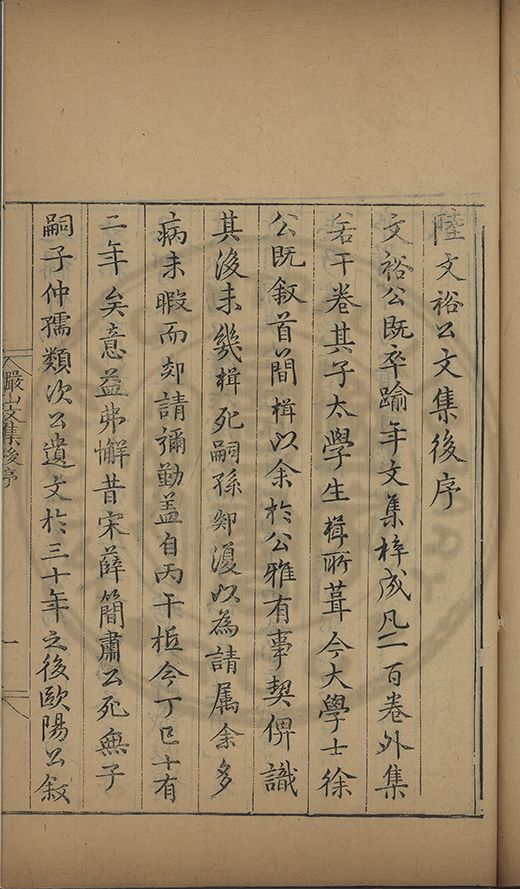 陸文裕公文集後序
文裕公既卒踰年文集梓成凡一百卷外集
若干卷其子太學生楫所葺今大學士徐
公既敘首簡楫以余於公雅有事契俾識
其後未幾楫死嗣孫郯復以為請属余多
病未暇而郯請彌勤盖自丙午抵今丁巳十有
二年矣意益弗懈昔宋薛簡肅公死無子
嗣子仲孺類次公遺文於三十年之後歐陽公敘
儼山文集後序
一